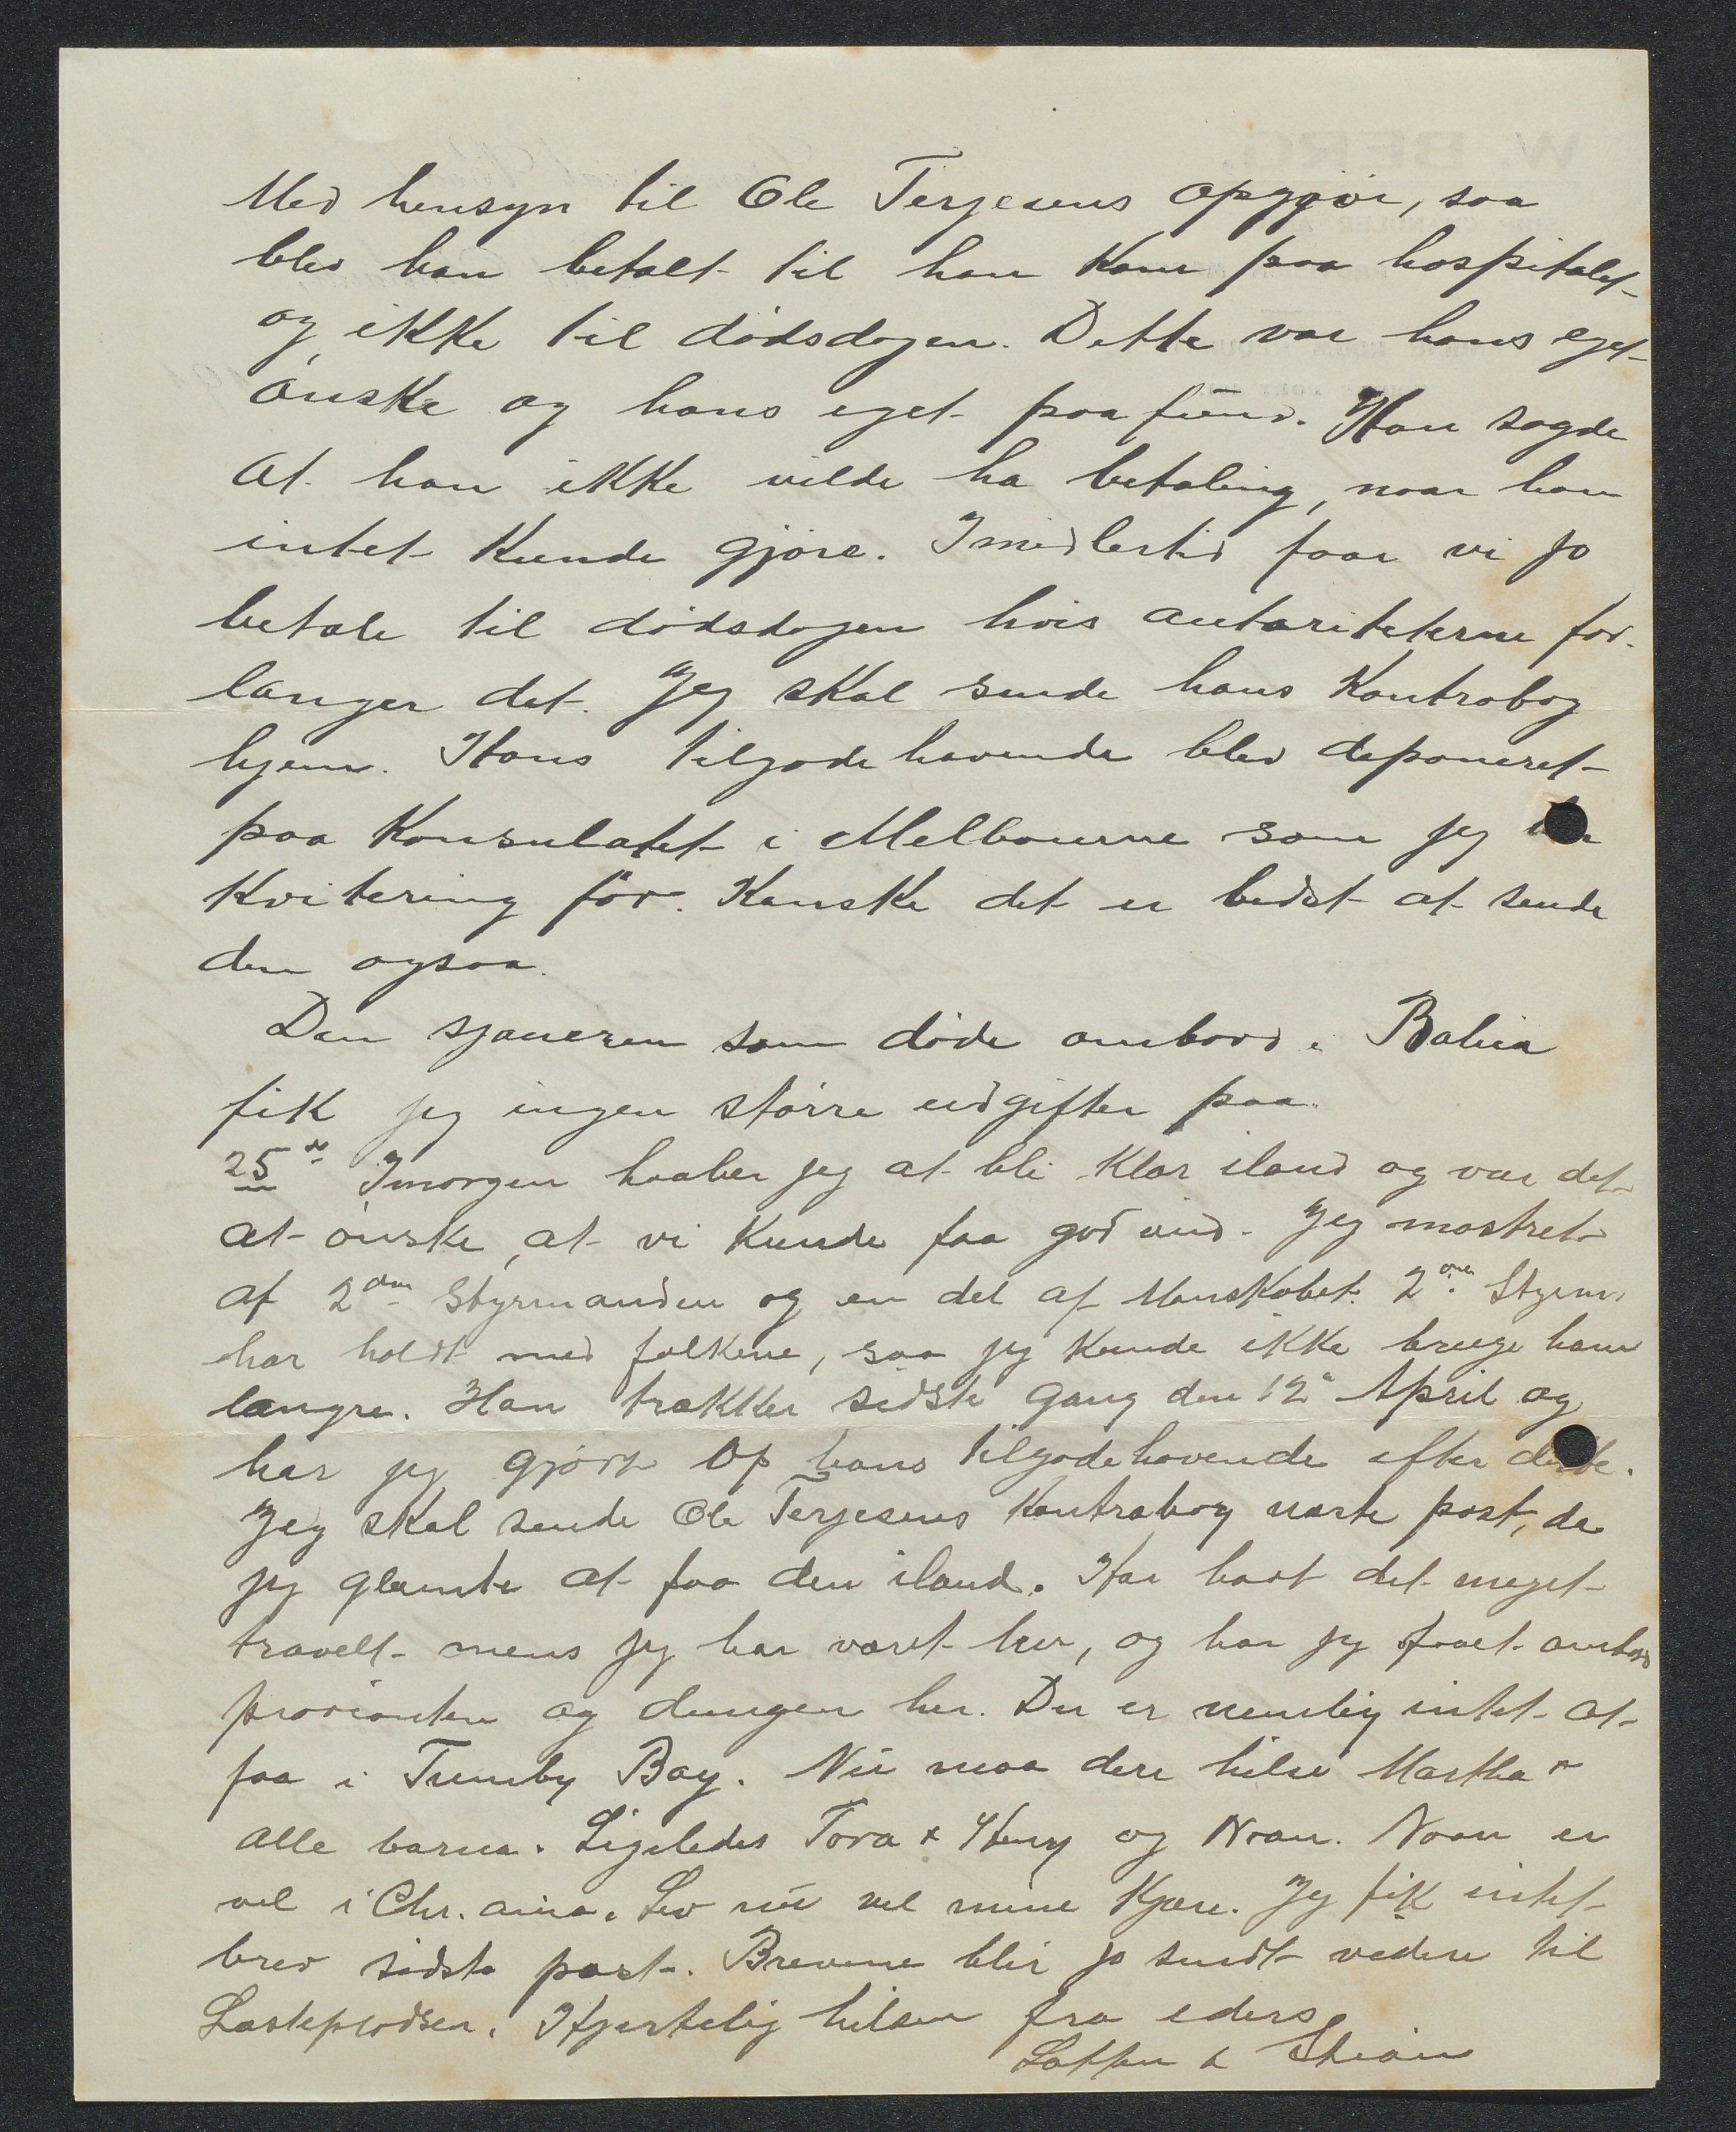 Med hensyn til Ole Terjesens opgjör, saa
blev han betalt til han kom paa hospitalet
og ikke til dödsdagen. Dette var hans eget
önske og hans eget paafund. Han sagde
at han ikke vilde ha betaling, naar han
intet kunde gjöre. Imidlertid faar vi jo
betale til dödsdagen hvis autoriteterne for-
langer det. Jeg skal sende hans Kontrabog
hjem. Hans tilgodehavende blev deponeret
paa Konsulatet i Melbourne som jeg har
kvitering för. Kanske det er bedst at sende
den ogsaa.
Den sjaueren som döde ombord i Bahia
fik jeg ingen större udgifter paa.
25de Imorgen haaber jeg at bli klar iland og var det
at önske, at vi kunde faa god vind. Jeg mønstret
af 2den Styrmanden og en del af Manskabet. 2den Styrm.
har holdt med folkene, saa jeg kunde ikke bruge ham
længre. Han trækker sidste gang den 12te April og
har jeg gjört op hans tilgodehavende efter dette.
Jeg skal sende Ole Terjesens Kontrabog næste post, da
jeg glemte at faa den iland. Har havt det meget
travelt mens jeg har været her, og har jeg faaet ombord
provianten og dungen her. Der er nemlig intet at
faa i Tumby Bay. Nu maa dere hilse Martha &
alle barna. Ligeledes Tora & Henry og Noan. Noan er
vel i Chr.ania. Lev nu vel mine Kjære. Jeg fik intet
brev sidste post. Brevene blir jo sendt videre til
Lastepladsen. Hjertelig hilsen fra eders
Lotten &